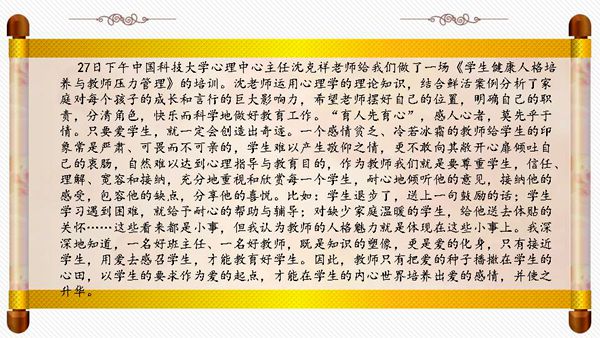 27日下午中国科技大学心理中心主任沈克祥老师给我们做了一场《学生健康人格培
养与教师压力管理》的培训。沈老师运用心理学的理论知识，结合鲜活案例分析了家
庭对每个孩子的成长和言行的巨大影响力，希望老师摆好自己的位置，明确自己的职
责，分清角色，快乐而科学地做好教育工作。“育人先育心”，感人心者，莫先乎于
情。只要爱学生，就一定会创造出奇迹。一个感情贫乏、冷若冰霜的教师给学生的印
象常是严肃、可畏而不可亲的，学生难以产生敬仰之情，更不敢向其敞开心扉倾吐自
己的衷肠，自然难以达到心理指导与教育目的，作为教师我们就是要尊重学生，信任、
理解、宽容和接纳，充分地重视和欣赏每一个学生，耐心地倾听他的意见，接纳他的
感受，包容他的缺点，分享他的喜悦。比如：学生退步了，送上一句鼓励的话；学生
学习遇到困难，就给予耐心的帮助与辅导；对缺少家庭温暖的学生，给他送去体贴的
关怀……这些看来都是小事，但我认为教师的人格魅力就是体现在这些小事上。我深
深地知道，一名好班主任、一名好教师，既是知识的塑像，更是爱的化身，只有接近
学生，用爱去感召学生，才能教育好学生。因此，教师只有把爱的种子播撒在学生的
心田，以学生的要求作为爱的起点，才能在学生的内心世界培养出爱的感情，并使之
升华。